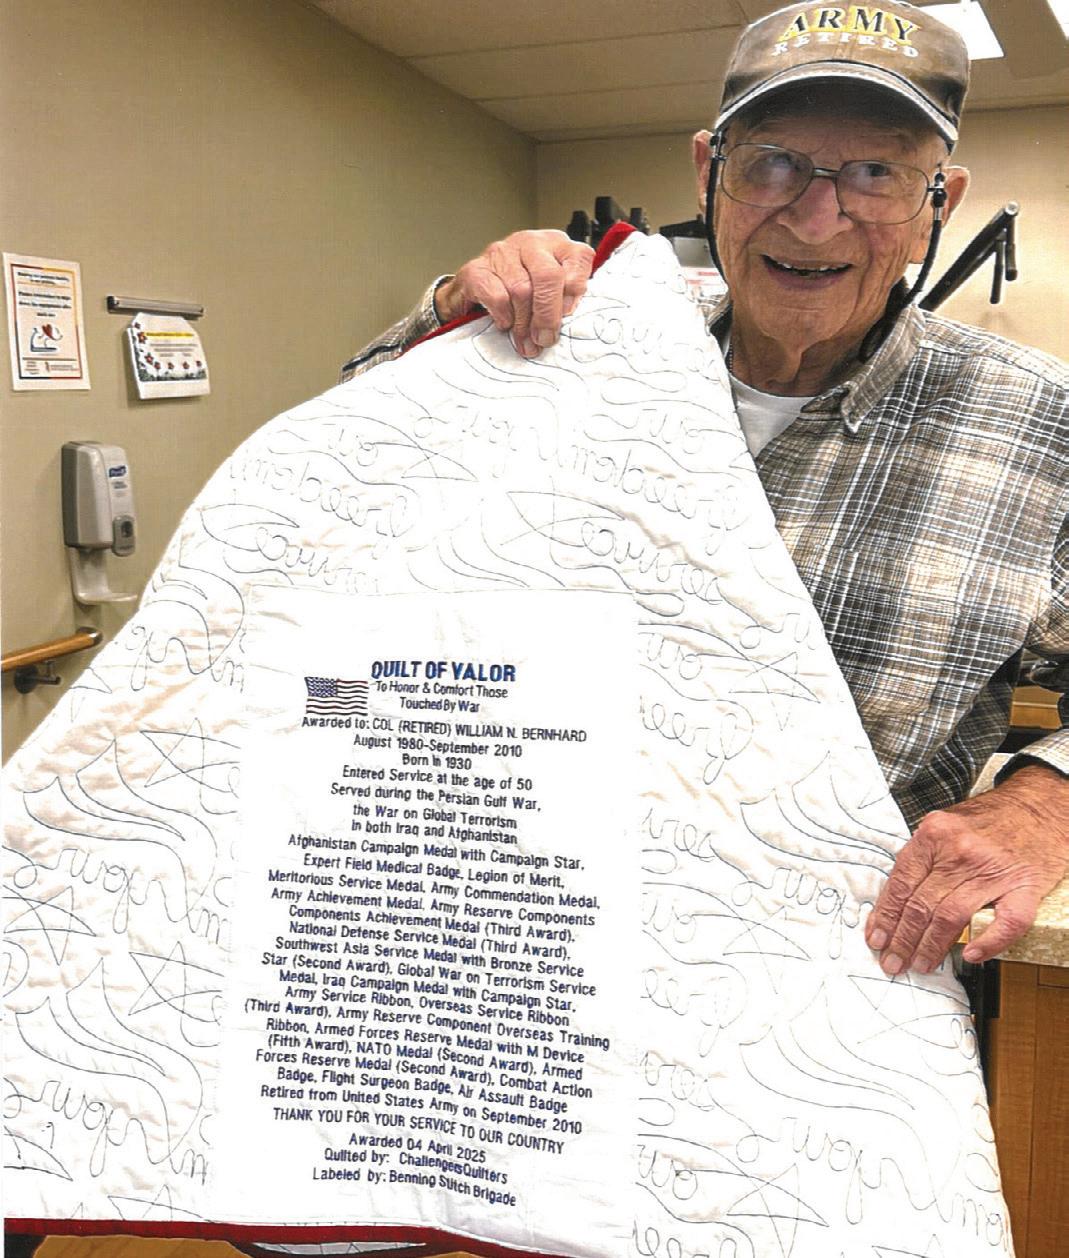 ARMY
RETIRED
QUILT OF VALOR
To Honor & Comfort Those
Touched By War
Awarded to: COL (RETIRED) WILLIAM N. BERNHARD
August 1980-September 2010
Born in 1930
Entered Service at the age of 50
Served during the Persian Gulf War,
the War on Global Terrorism
in both Iraq and Afghanistan
Afghanistan Campaign Medal with Campaign Star,
Expert Field Medical Badge, Legion of Merit,
Meritorious Service Medal, Army Commendation Medal,
Army Achievement Medal, Army Reserve Components
Components Achievement Medal (Third Award),
National Defense Service Medal (Third Award),
Southwest Asia Service Medal with Bronze Service
Star (Second Award), Global War on Terrorism Service
Medal, Iraq Campaign Medal with Campaign Star,
Army Service Ribbon, Overseas Service Ribbon
(Third Award), Army Reserve Component Overseas Training
Ribbon, Armed Forces Reserve Medal with M Device
(Fifth Award), NATO Medal (Second Award), Armed
Forces Reserve Medal (Second Award), Combat Action
Badge, Flight Surgeon Badge, Air Assault Badge
Retired from United States Army on September 2010
THANK YOU FOR YOUR SERVICE TO OUR COUNTRY
Awarded 04 April 2025
Quilted by: ChallengersQuilters
Labeled by: Benning Stitch Brigade